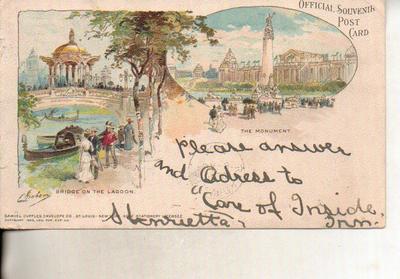 OFFICIAL SOUVENIR
POST
CARD
THE MONUMENT.
BRIDGE ON THE LAGOON.
Please answer
and adress to
a
Care of Inside
Henrietta, Inn.
SAMUEL CUPPLES ENVELOPE CO., ST. LOUIS - NEW